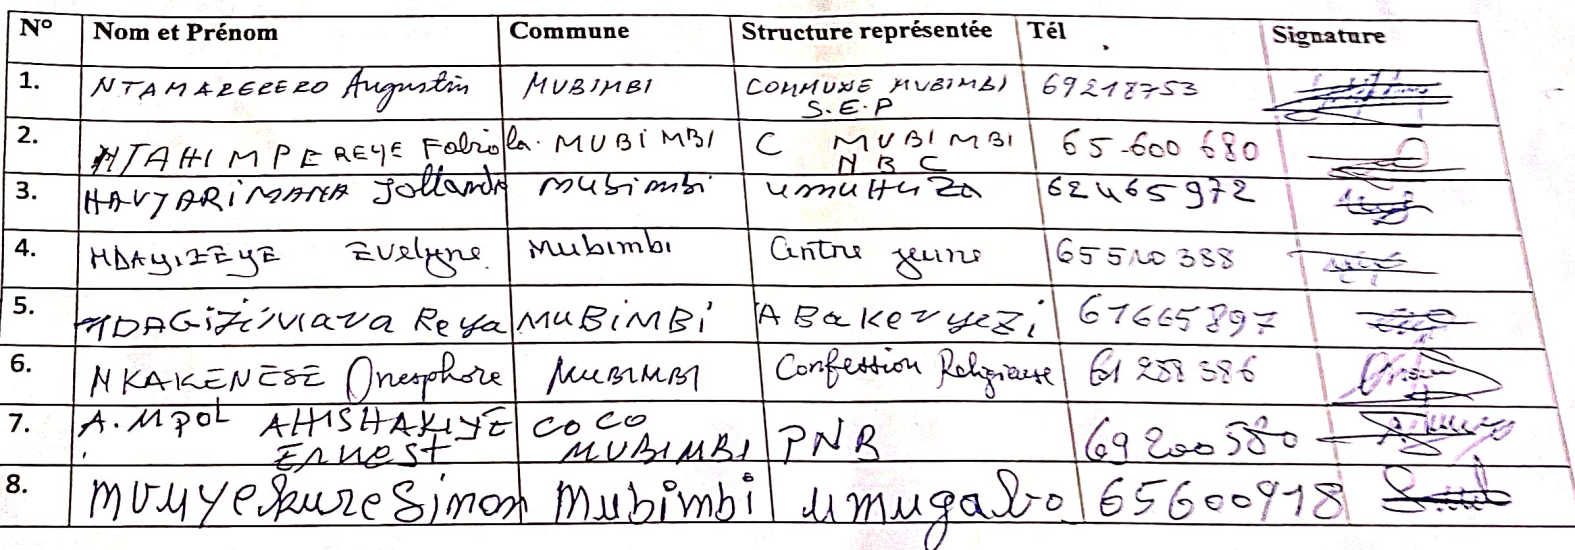 N° Nom et Prénom Commune Structure représentée Tél Signature
1. NTAMARERERO Augustin MUBIMBI COMMUNE MUBIMBI 69218753
S.E.P
2. NTAHIMPEREYE Fabiola. MUBIMBI C MUBIMBI 65-600 680
NBC
3. HAVYARIMANA Jollande mubimbi umuHuza 62465972
4. NDAYIZEYE Evelyne. Mubimbi Centre jeune 65510388
5. NDAGiJiMana Reya MUBIMBi ABakenyezi 61665897
6. NKAKENESE Onesphore MUBIMBI Confession Religieuse
7. A.MPOL AHISHAKIYE COCO PNB 69200580
ERNEST MUBIMBI
8. Mubimbi umugabo 65600918